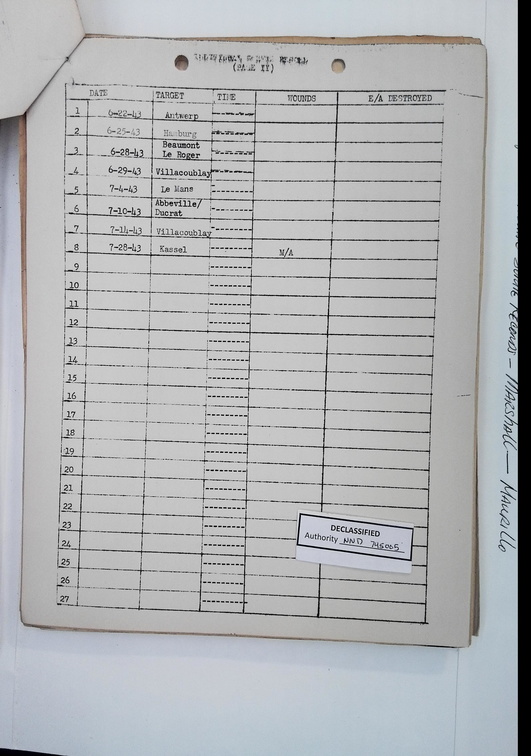 (PAGE II)
DATE TARGET TIME WOUNDS E/A DESTROYED
1 6-22-43 Antwerp
2 6-25-43 Hamburg
3 6-28-43 Beaumont
Le Roger
4 6-29-43 Villacoublay
5 7-4-43 Le Mans
6 7-10-43 Abbeville/
Ducrat
7 7-14-43 Villacoublay
8 7-28-43 Kassel M/A
9
10
11
12
13
14
15
16
17
18
19
20
21
22
23
24
25
26
27
DECLASSIFIED
Authority NND 745005
Records - Marshall - Maurillo